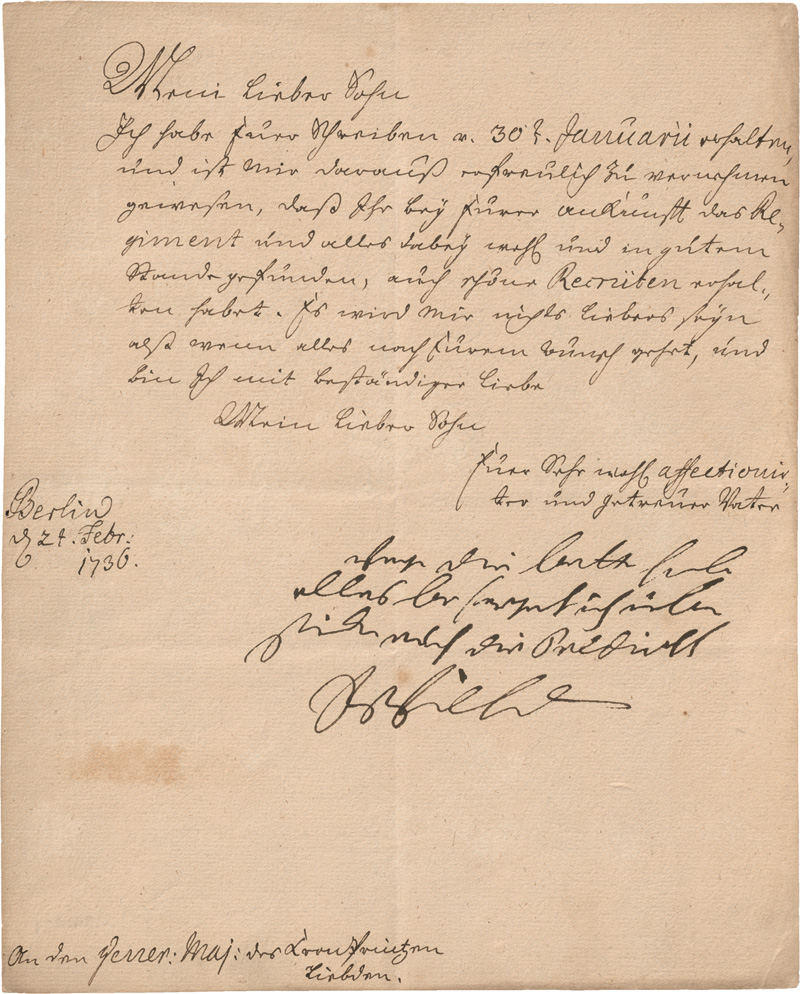 Mein lieber Sohn
Ich habe Euer Schreiben v. 30t. Januarii erhalten,
und ist mir darauß erfreulich zu vernehmen
gewesen, daß Ihr bey Eurer ankunfft das Re-
giment und alles dabey wohl und in gutem
Stande gefunden, auch schöne Recruten erhal-
ten habet. Es wird mir nichts liebers seyn
alß wenn alles nach Eurem wunsch gehet, und
bin Ich mit beständiger liebe
Mein lieber Sohn
Euer Sehr wohl affectionir-
ter und getreuer Vater
Berlin
d 24. Febr:
1736.
die
alles ich
die
FWilhelm
An den Gener: Maj: des Cron Printzen
Liebden.